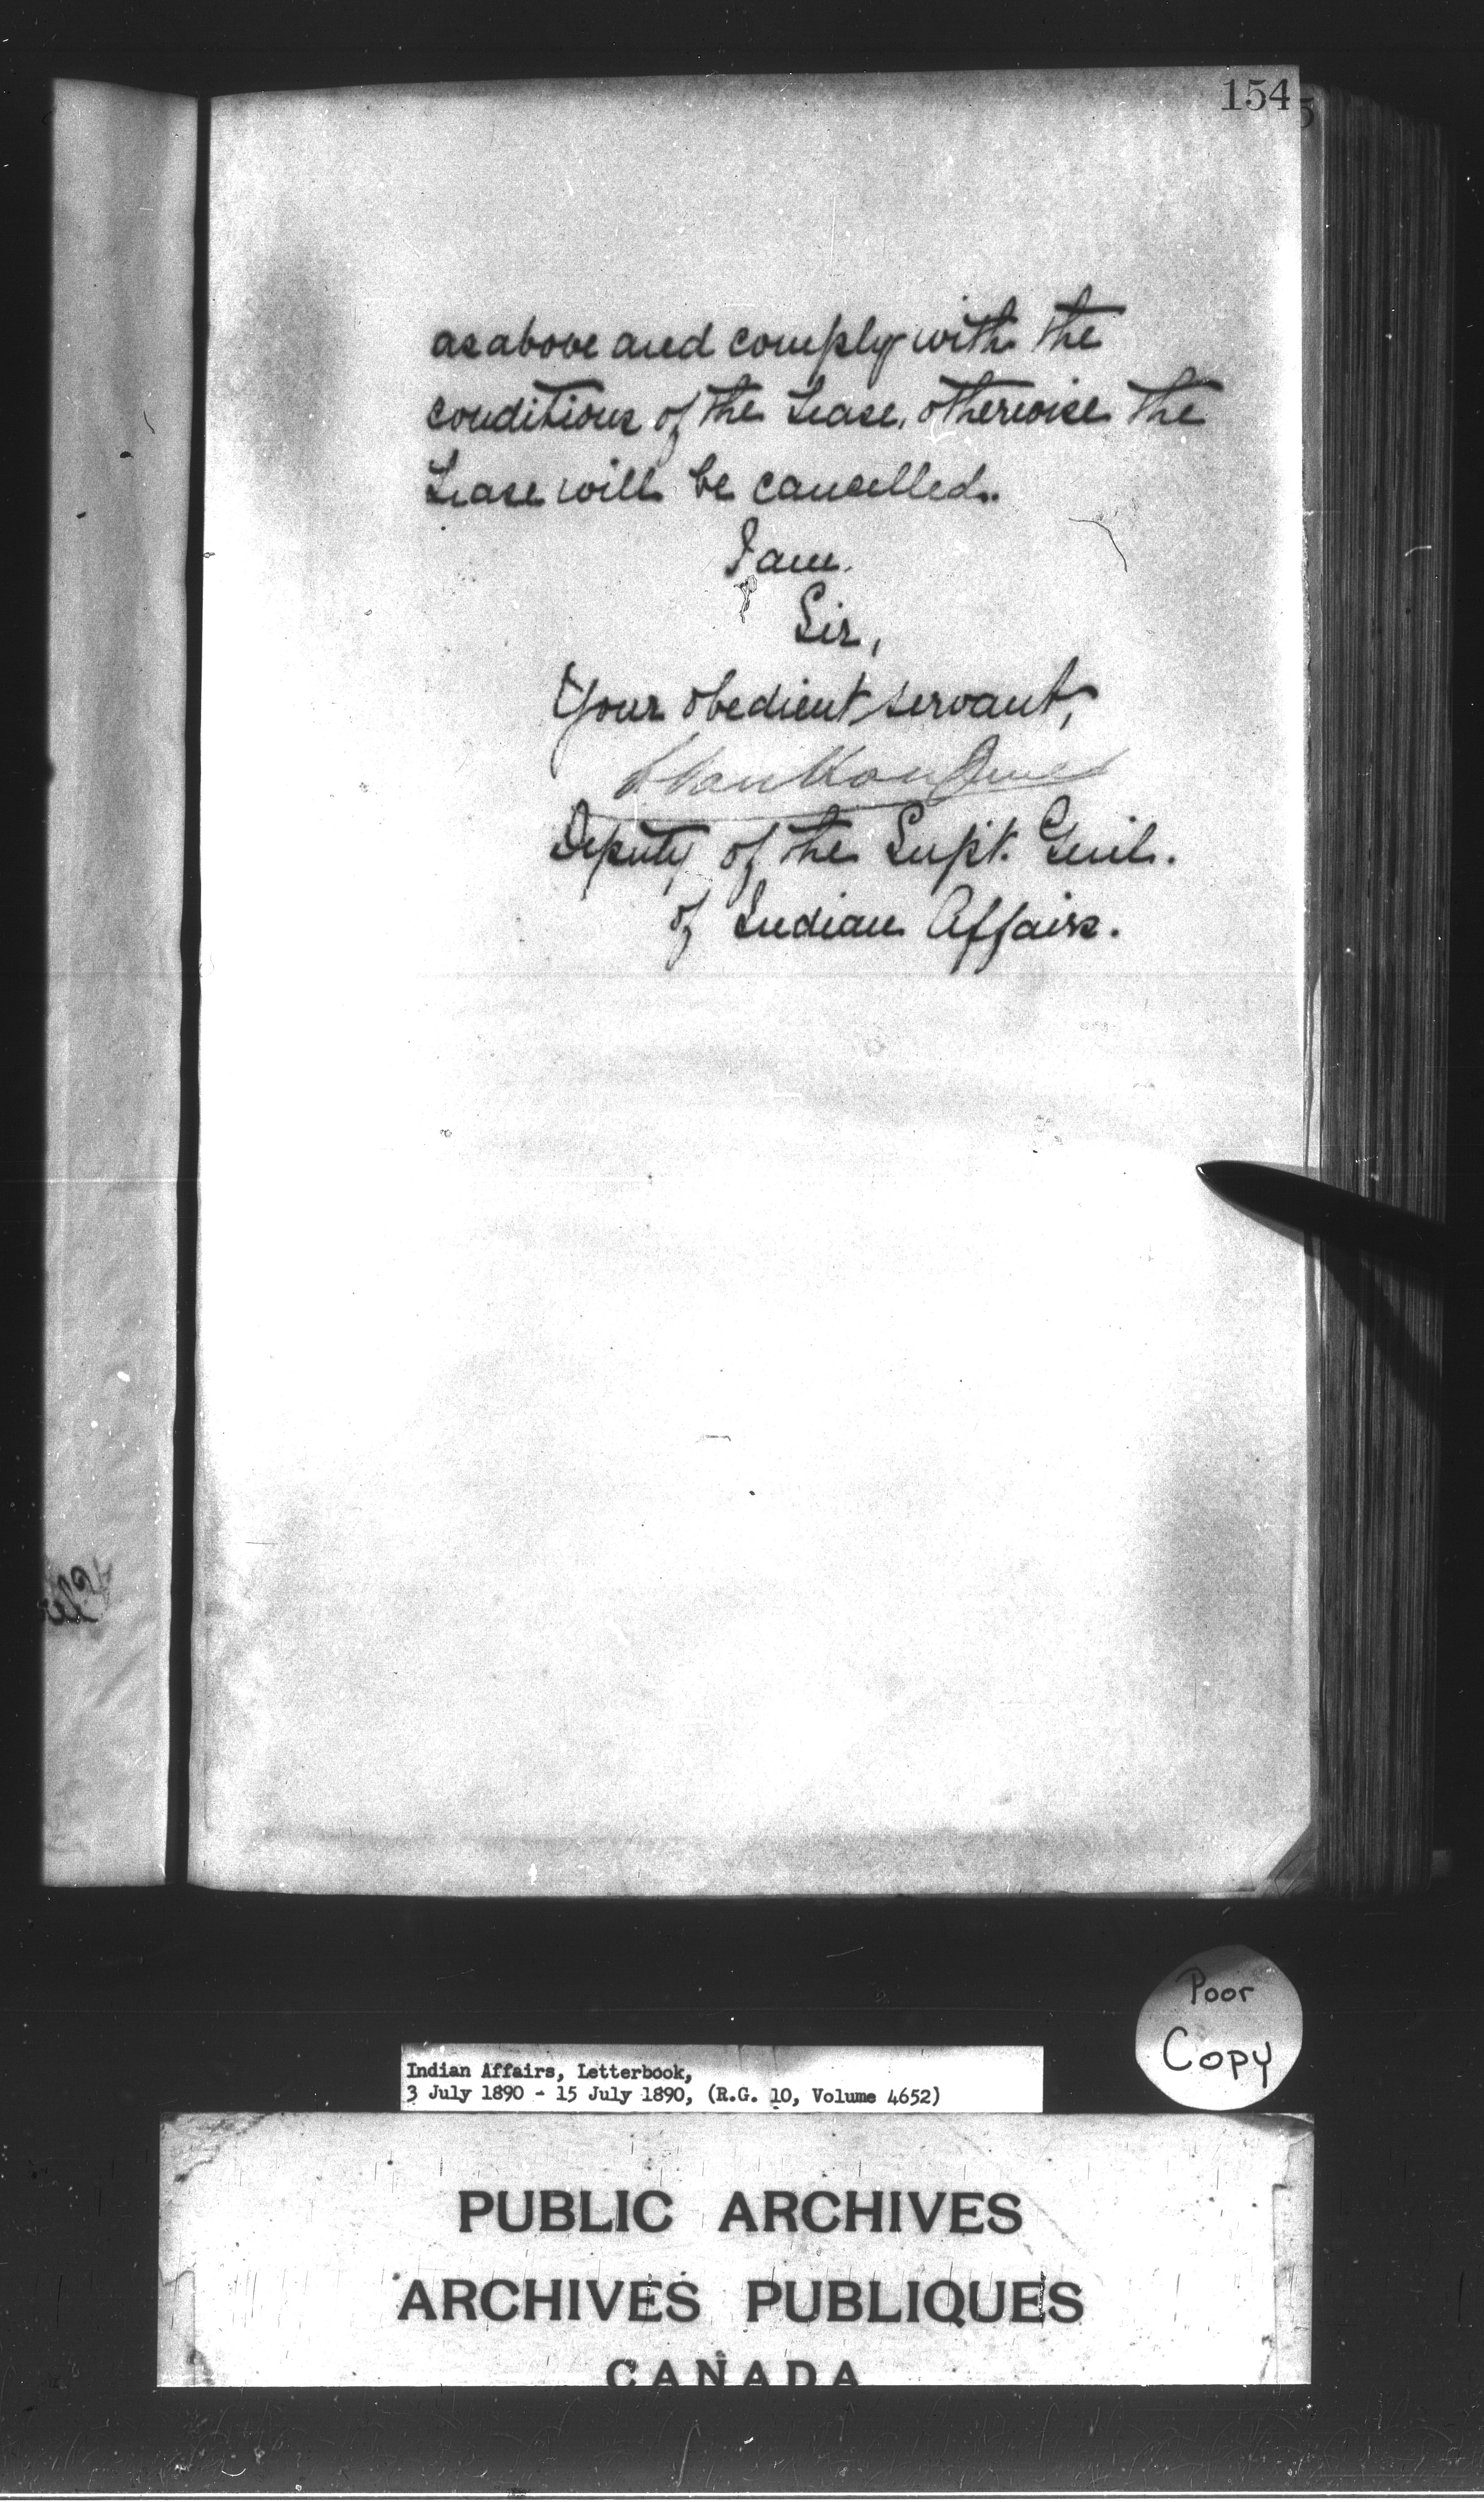 154
as above and comply with the
conditions of the Lease, otherwise the
Lease will be cancelled.
I am.
Sir,
Your obedient servant,
Deputy of the Supt. Genl.
of Indian Affairs.
Poor
Copy
Indian Affairs, Letterbook,
3 July 1890 - 15 July 1890, (R.G. 10, Volume 4652)
PUBLIC ARCHIVES
ARCHIVES PUBLIQUES
CANADA